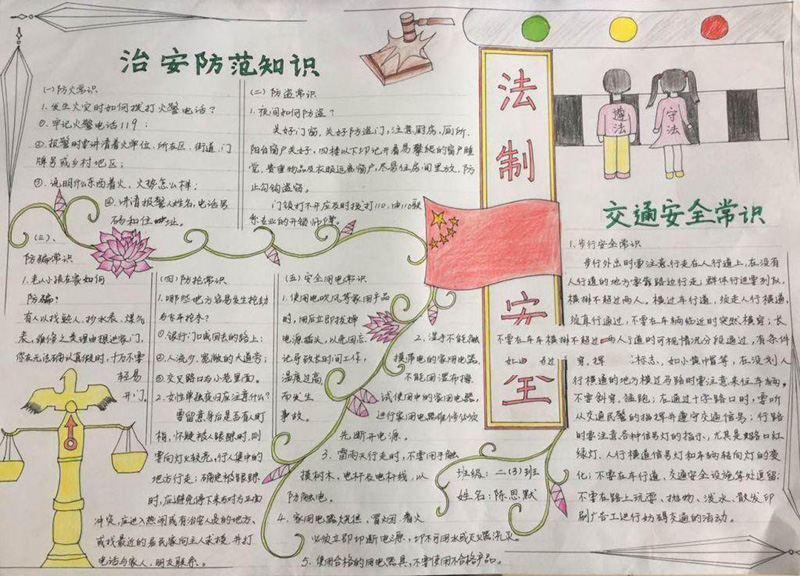 治安防范知识
(一)防火常识
1.发生火灾时如何拨打火警电话?
①.牢记火警电话119;
②.报警时要讲清着火单位,所在区、街道、门
牌号或乡村地区;
③.说明什么东西着火,火势怎么样;
④.讲清报警人姓名,电话号
码和住址。
(二)防盗常识
1.夜间如何防盗?
关好门窗,关好防盗门,注意厨房、厕所、
阳台窗户关好,四楼以下切记开着易攀爬的窗户睡
觉,贵重物品及衣服远离窗户,尽量往房间里放,防
止勾钩盗窃。
门锁打不开应及时拨打110,由110联
系专业的开锁师傅。
(三)、
防骗常识
1.老人小孩在家如何
防骗?
有人以找熟人、抄水表、煤气
表、维修之类理由跟进家门,
你在无法确认真假时,千万不要
轻易
开门。
(四)防抢常识
1.哪些地方容易发生抢劫
与夺车抢夺?
①银行门口或回去的路上;
②人流少、宽敞的人道旁;
③交叉路口与小巷里面。
2.女性单独夜归应注意什么?
要留意身后是否有人盯
梢,怀疑被人跟踪时,则
要向灯火较亮,行人集中的
地方行走;确定被跟踪
时,应避免停下来与对方正面
冲突,应进入热闹或有治安人员的地方,
或找最近的居民家向主人求援,并打
电话与家人、朋友联系。
(五)安全用电常识
1.使用电吹风等家用产品
时,用后立即拔掉
电源插头,以免因忘
记导致长时间工作,
温度过高
而发生
事故。
2.湿手不能触
摸带电的家用电器,
不能用湿布擦
拭使用中的家用电器,
进行家用电器维修必须
先断开电源。
3.雷雨天行走时,不要用手触
摸树木、电杆及电杆拉线,以
防触电。
4.家用电器烧焦、冒火因、着火
必须立即切断电源,切不可用水或灭火器浇灭。
5.使用合格的用电器具,不要使用不合格产品。
法
制
安
全
班级:二(3)班
姓名:陈思默
遵法
守法
交通安全常识
1.步行安全常识
步行外出时要注意,行走在人行道上,在没有
人行道的地方要靠路边行走;群体行进要列队,
横排不超过两人,横过车行道,须走人行横道,
须直行通过,不要在车辆临近时突然横穿;长
不要在车车横排不超过
人行道时可视情况分段通过,有条件
穿,挥
标志,如小黄帽等,在没划人
行横道的地方横过马路时要注意来往车辆,
不要斜穿、猛跑;在通过十字路口时,要听
从交通民警的指挥并遵守交通信号;行路
时要注意各种信号灯的指示,尤其是路口红
绿灯、人行横道信号灯和车辆转向灯的变
化;不要在车行道、交通安全设施等处逗留;
不要在路上玩耍、抛物、泼水、散发印
刷广告工进行妨碍交通的活动。